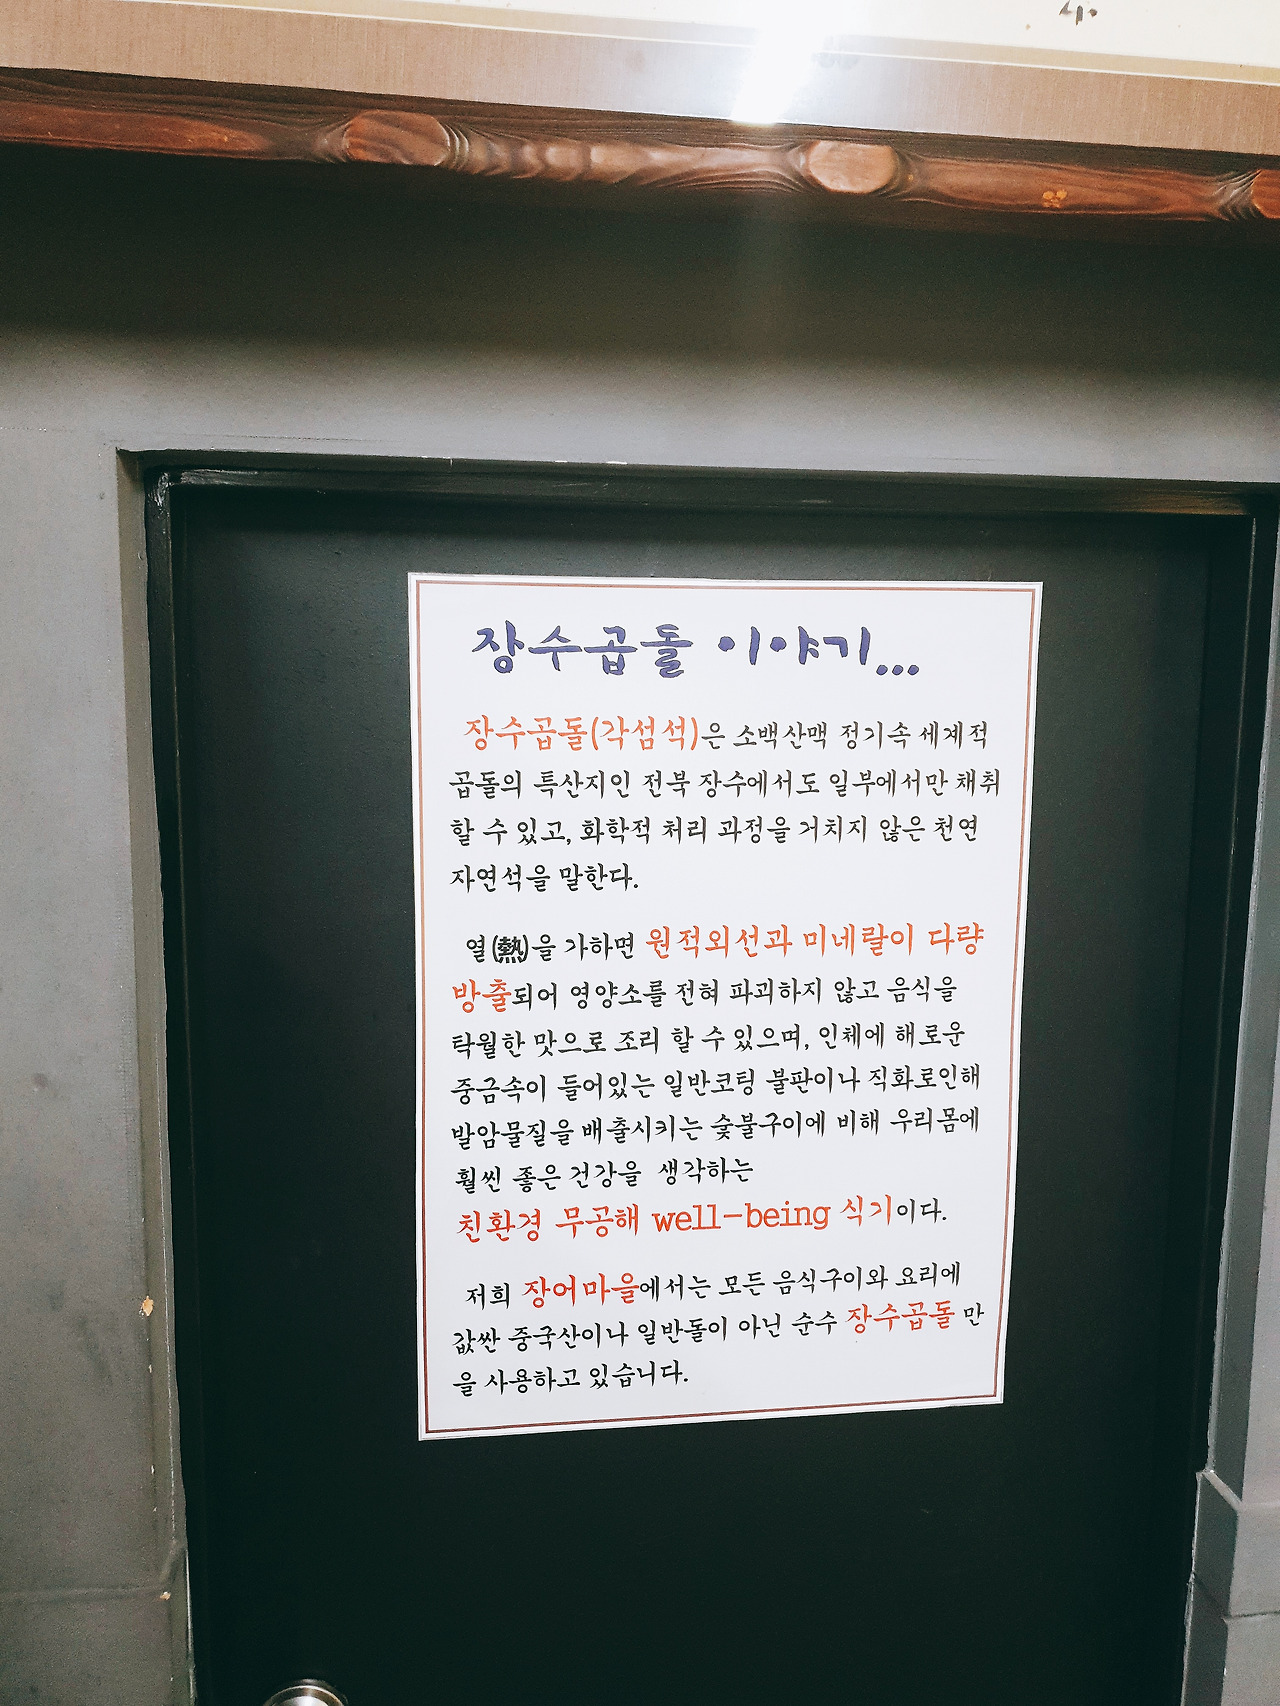 장수곱돌 이야기...
장수곱돌(각섬석)은 소백산맥 정기속 세계적
곱돌의 특산지인 전북 장수에서도 일부에서만 채취
할 수 있고, 화학적 처리 과정을 거치지 않은 천연
자연석을 말한다.
열(熱)을 가하면 원적외선과 미네랄이 다량
방출되어 영양소를 전혀 파괴하지 않고 음식을
탁월한 맛으로 조리 할 수 있으며, 인체에 해로운
중금속이 들어있는 일반코팅 불판이나 직화로인해
발암물질을 배출시키는 숯불구이에 비해 우리몸에
훨씬 좋은 건강을 생각하는
친환경 무공해 well-being 식기이다.
저희 장어마을에서는 모든 음식구이와 요리에
값싼 중국산이나 일반돌이 아닌 순수 장수곱돌 만
을 사용하고 있습니다.